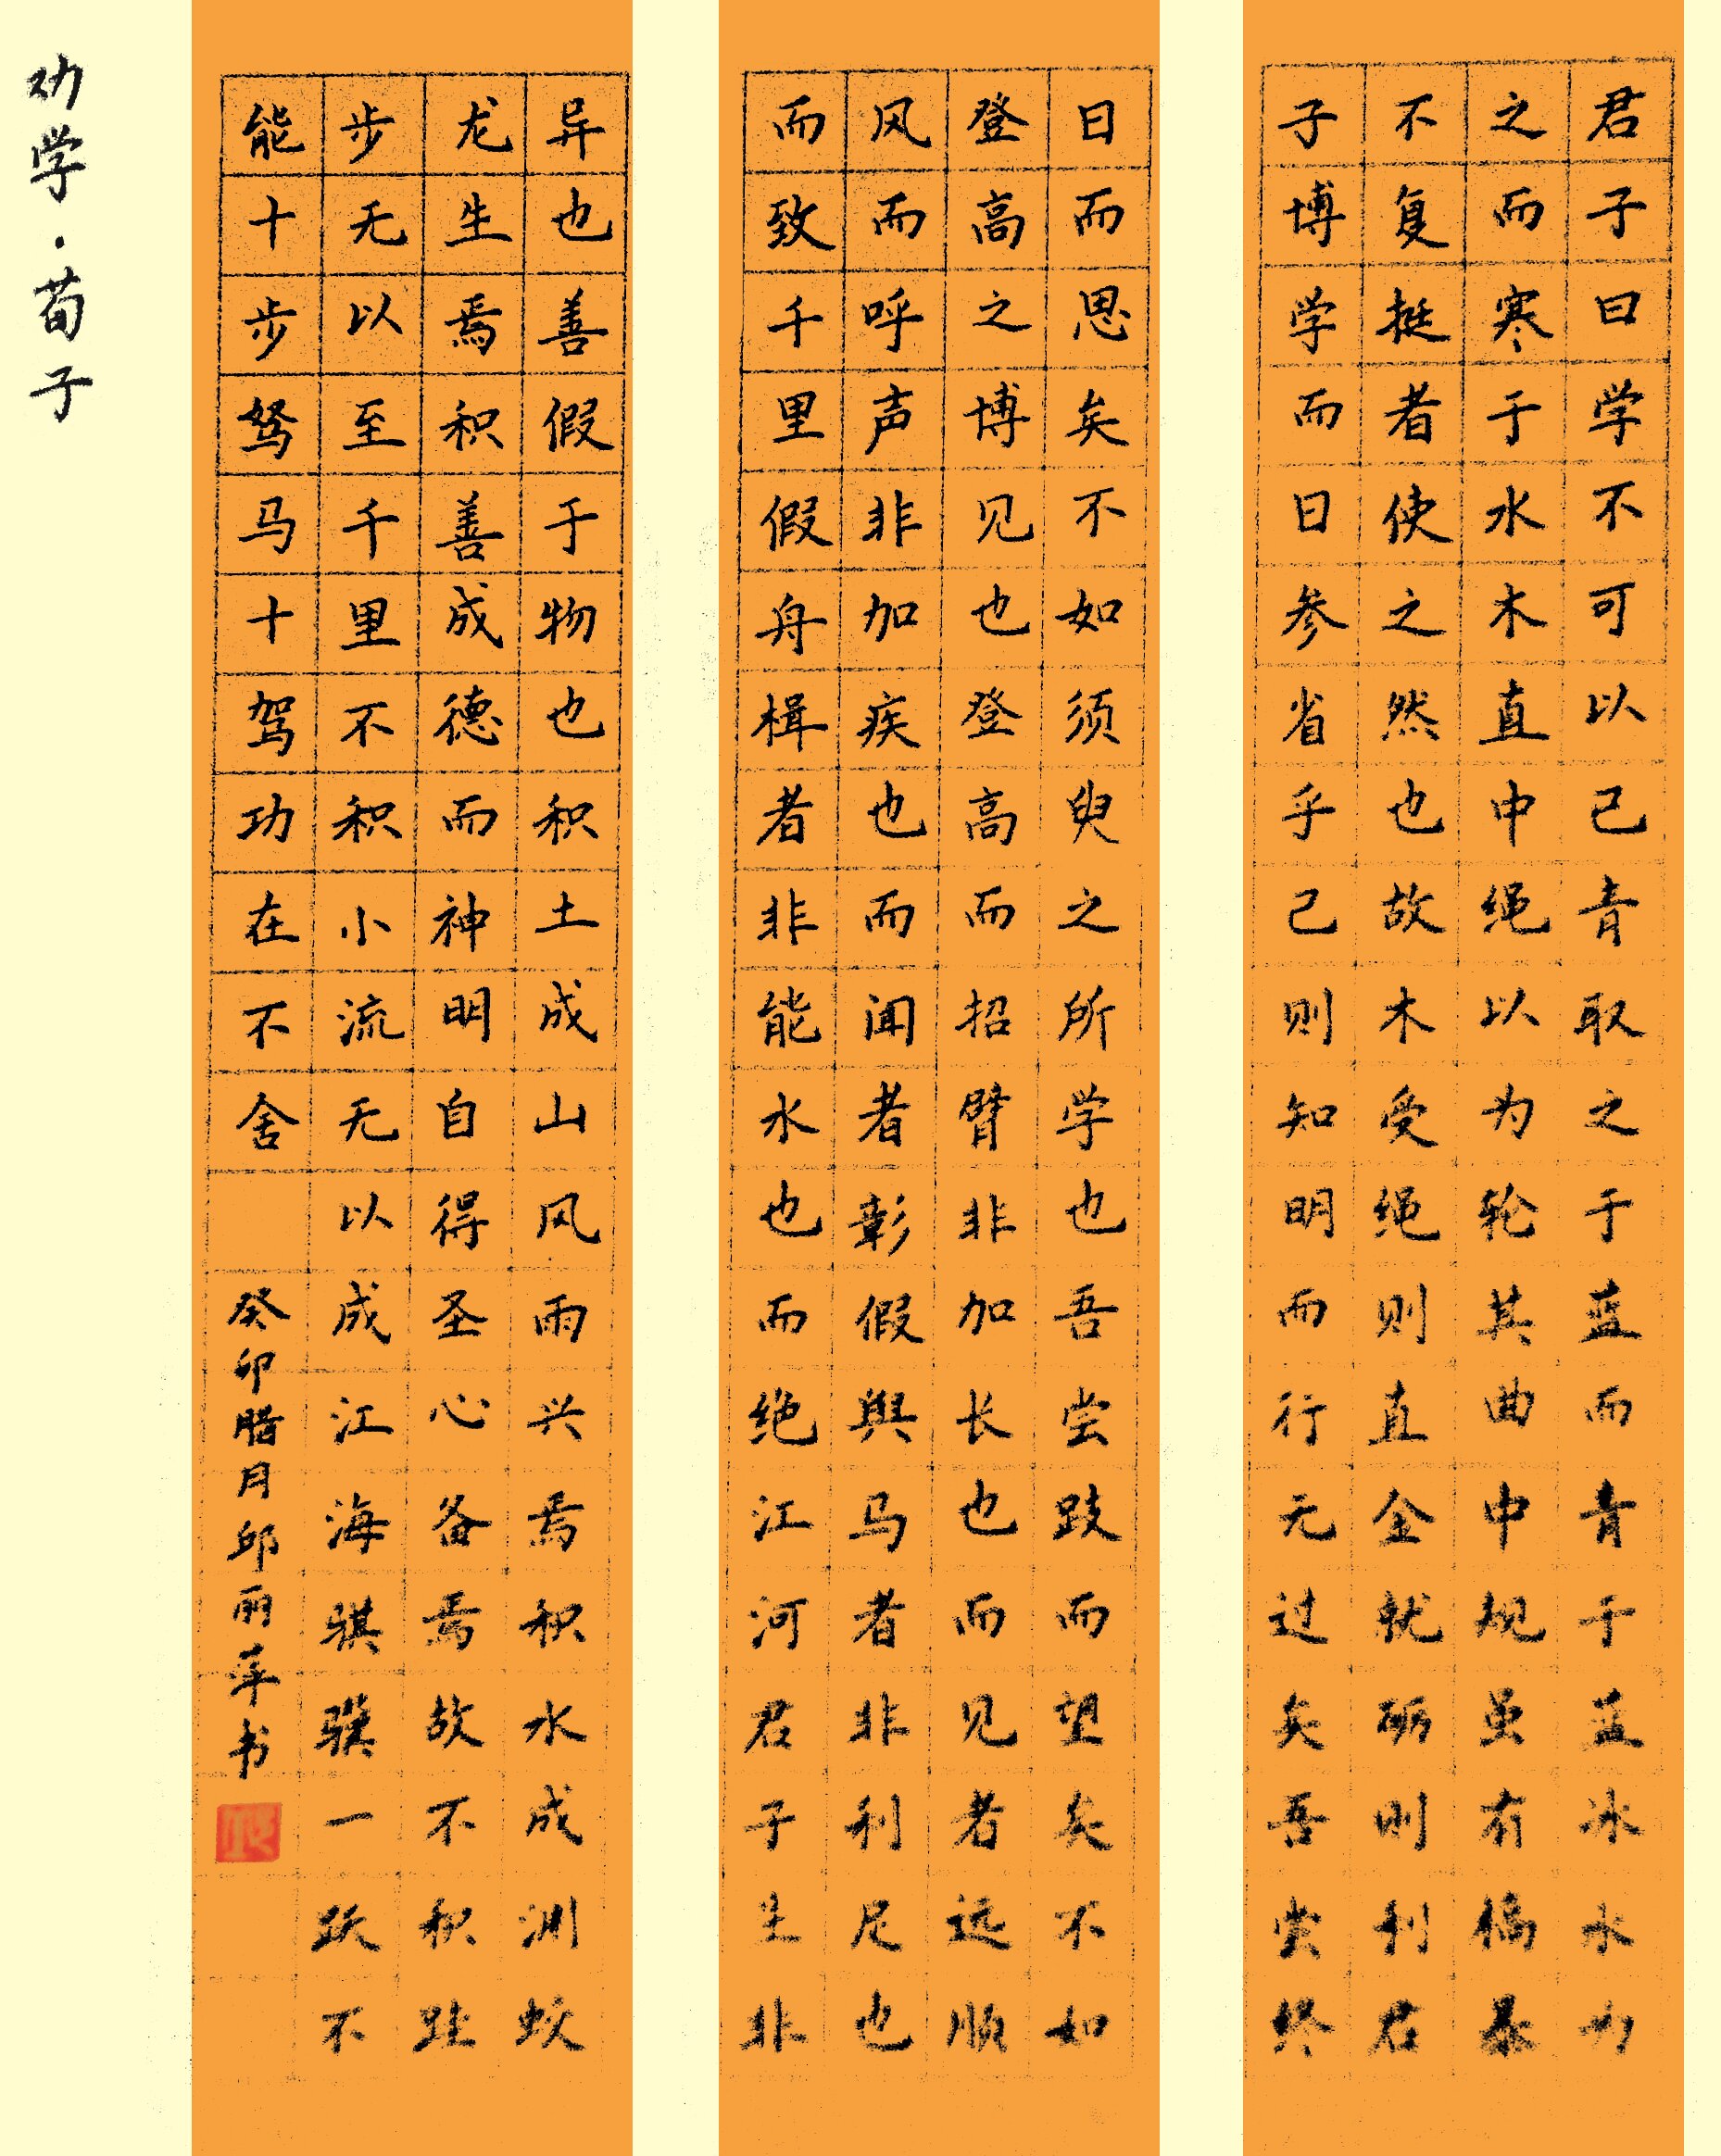 君子曰学不可以己青取之于蓝而青于蓝冰水为
之而寒于水木直中绳以为轮其曲中规虽有槁暴
不复挺者使之然也故木受绳则直金就砺则利君
子博学而日参省乎己则知明而行无过矣吾尝终
日而思矣不如须臾之所学也吾尝跂而望矣不如
登高之博见也登高而招臂非加长也而见者远顺
风而呼声非加疾也而闻者彰假舆马者非利足也
而致千里假舟楫者非能水也而绝江河君子生非
异也善假于物也积土成山风雨兴焉积水成渊蛟
龙生焉积善成德而神明自得圣心备焉故不积跬
步无以至千里不积小流无以成江海骐骥一跃不
能十步驽马十驾功在不舍
癸卯腊月邱丽苹书
劝学·荀子